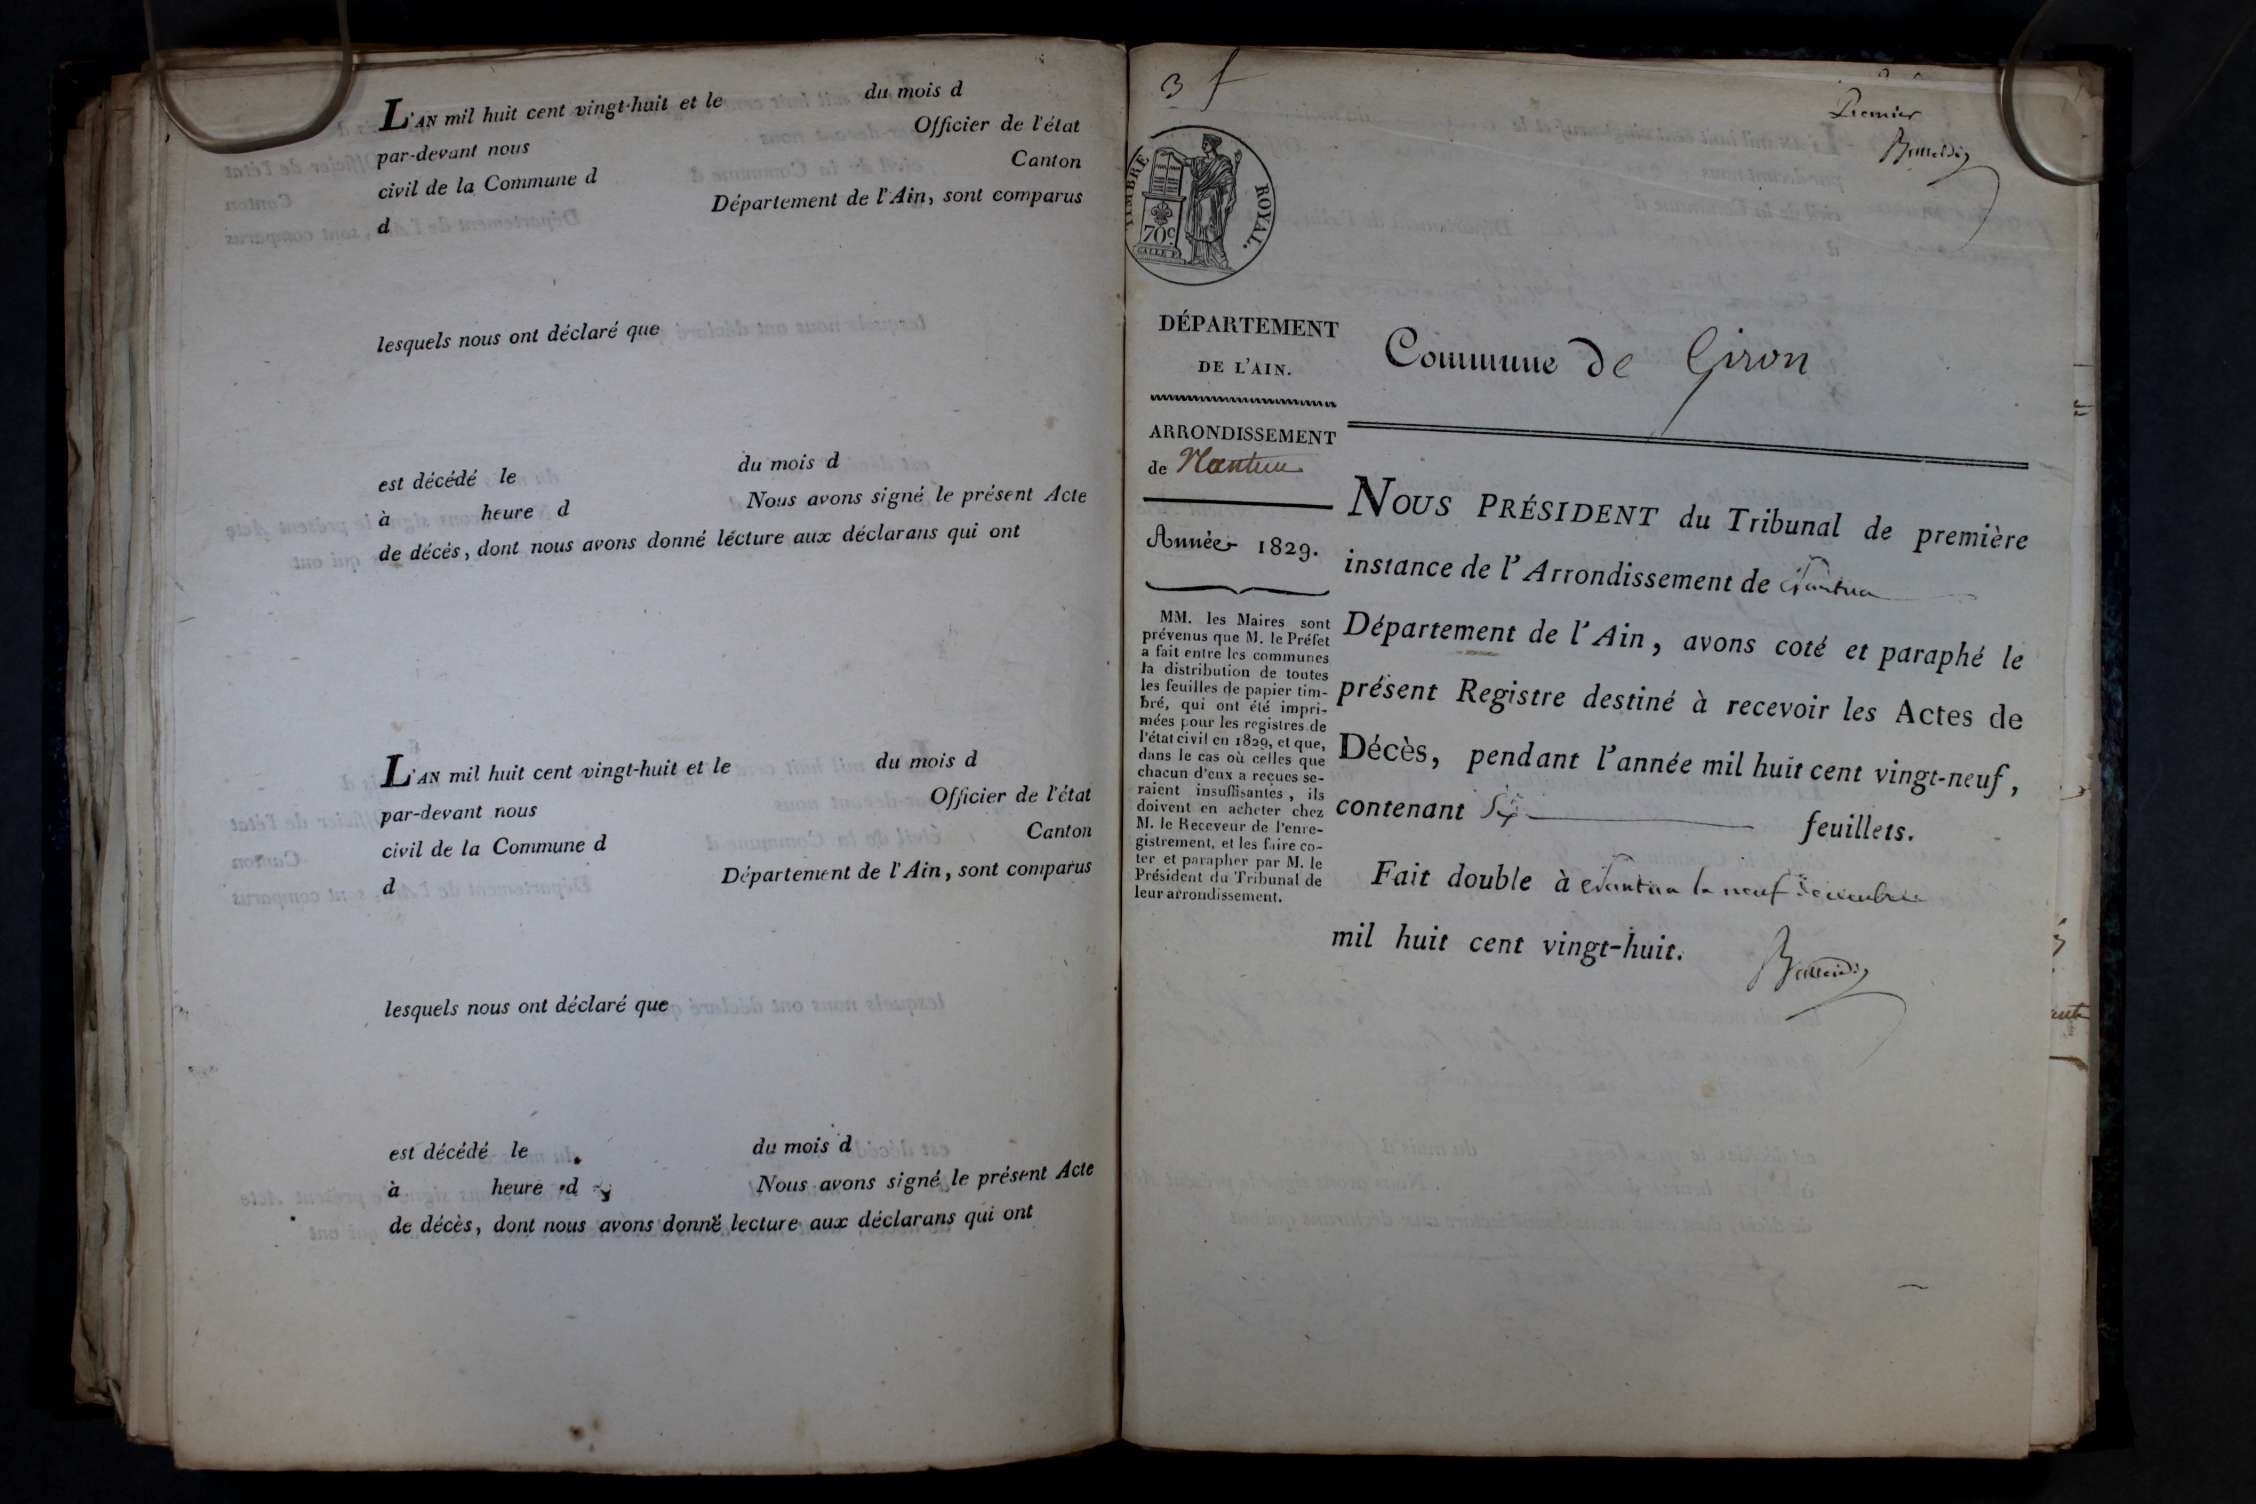 L'AN mil huit cent vingt-huit et le du mois d
par-devant nous Officier de l'état
civil de la Commune d Canton
d Département de l'Ain, sont comparus
lesquels nous ont déclaré que
est décédé le du mois d
à heure d Nous avons signé le présent Acte
de décès, dont nous avons donné lecture aux déclarans qui ont
L'AN mil huit cent vingt-huit et le du mois d
par-devant nous Officier de l'état
civil de la Commune d Canton
d Département de l'Ain, sont comparus
lesquels nous ont déclaré que
est décédé le du mois d
à heure d Nous avons signé le présent Acte
de décès, dont nous avons donné lecture aux déclarans qui ont
3 f
Premier
TIMBRE ROYAL.
70c
DÉPARTEMENT
DE L'AIN.
ARRONDISSEMENT
de Nantua
Année 1829.
MM. les Maires sont
prévenus que M. le Préfet
a fait entre les communes
la distribution de toutes
les feuilles de papier tim-
bré, qui ont été impri-
mées pour les registres de
l'état civil en 1829, et que,
dans le cas où celles que
chacun d'eux a reçues se-
raient insuffisantes, ils
doivent en acheter chez
M. le Receveur de l'enre-
gistrement, et les faire co-
ter et parapher par M. le
Président du Tribunal de
leur arrondissement.
Commune de Giron
NOUS PRÉSIDENT du Tribunal de première
instance de l'Arrondissement de Nantua
Département de l'Ain, avons coté et paraphé le
présent Registre destiné à recevoir les Actes de
Décès, pendant l'année mil huit cent vingt-neuf,
contenant Six feuillets.
Fait double à Nantua le neuf Décembre
mil huit cent vingt-huit.